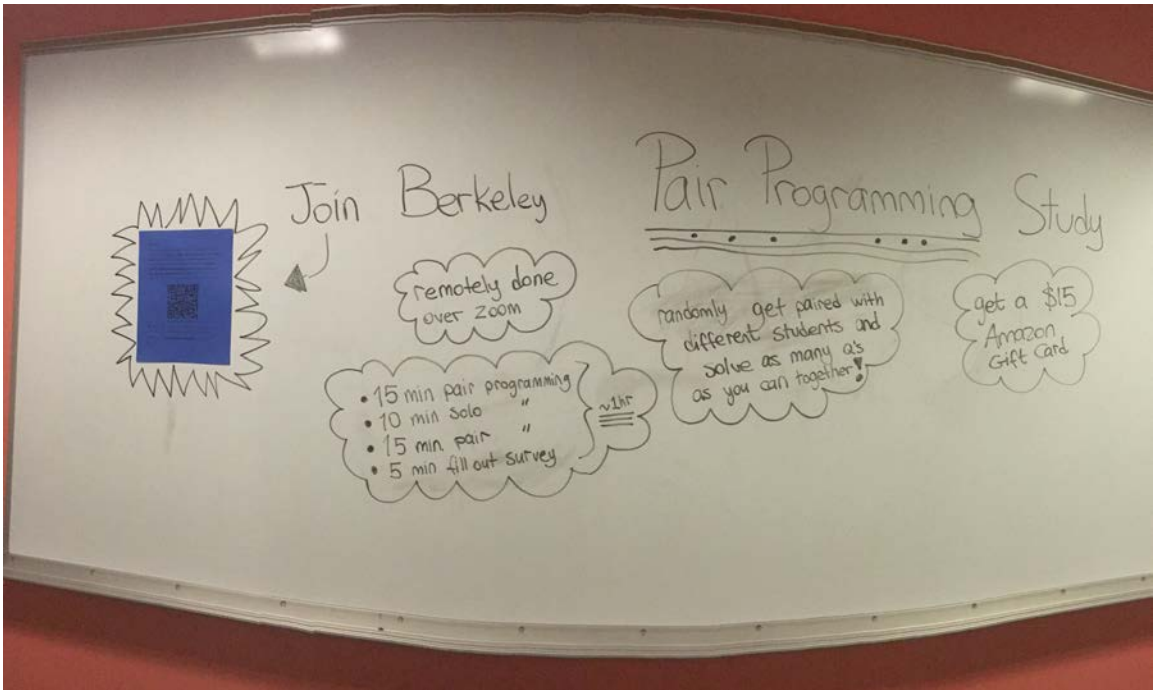 Join Berkeley Pair Programming Study
remotely done
over zoom
• 15 min pair programming
• 10 min solo "
• 15 min pair "
• 5 min fill out survey
~1hr
randomly get paired with
different students and
solve as many Q's
as you can together!
get a $15
Amazon
Gift Card